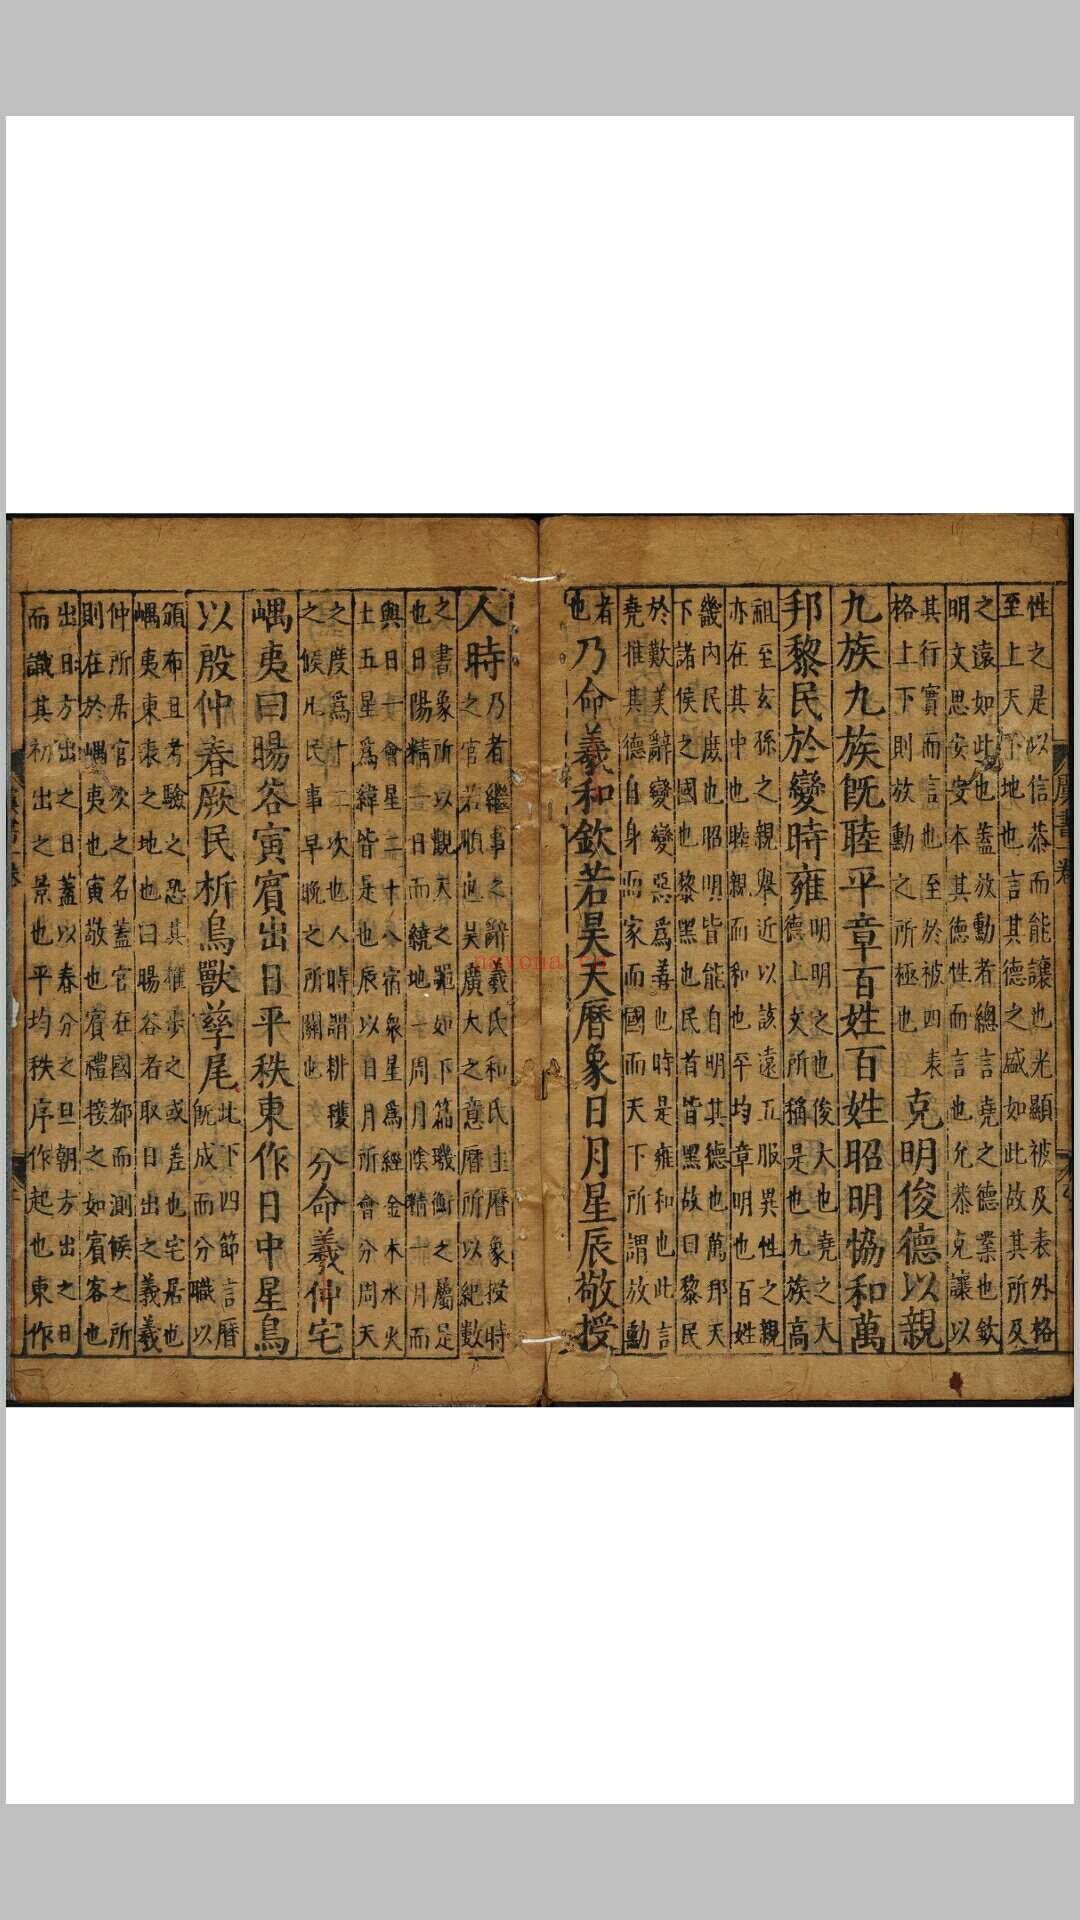 性之是以信恭而能讓也光顯被及表外格
至上天下地也言其德之盛如此故其所及
之遠如此也蓋放勳者總言堯之德業也欽
明文思安安本其德性而言也允恭克讓以
其行實而言也至於被四表
格上下則放勳之所極也
克明俊德以親
九族九族既睦平章百姓百姓昭明協和萬
邦黎民於變時雍
明明之也俊大也堯之大
德上文所稱是也九族高
祖至玄孫之親舉近以該遠五服異姓之親
亦在其中也睦親而和也平均章明也百姓
畿內民庶也昭明皆能自明其德也萬邦天
下諸侯之國也黎黑也民首皆黑故曰黎民
於歎美辭變變惡爲善也時是雍和也此言
堯推其德自身而家而國而天下所謂放勳
者
也
乃命羲和欽若昊天曆象日月星辰敬授
人時
乃者繼事之辭羲氏和氏主曆象授時
之官若順也昊廣大之意曆所以紀數
之書象所以觀天之器如下篇璣衡之屬是
也日陽精一日而繞地一周月陰精一月而
與日一會星二十八宿衆星爲經金木水火
土五星爲緯皆是也辰以日月所會分周天
之度爲十二次也人時謂耕穫
之候凡民事早晚之所關也
分命羲仲宅
嵎夷曰暘谷寅賓出日平秩東作日中星鳥
以殷仲春厥民析鳥獸孳尾
此下四節言曆
既成而分職以
頒布且考驗之恐其推步之或差也宅居也
嵎夷東表之地也曰暘谷者取日出之義羲
仲所居官次之名蓋官在國都而測候之所
則在於嵎夷也寅敬也賓禮接之如賓客也
出日方出之日蓋以春分之旦朝方出之日
而識其初出之景也平均秩序作起也東作
nayona.cn